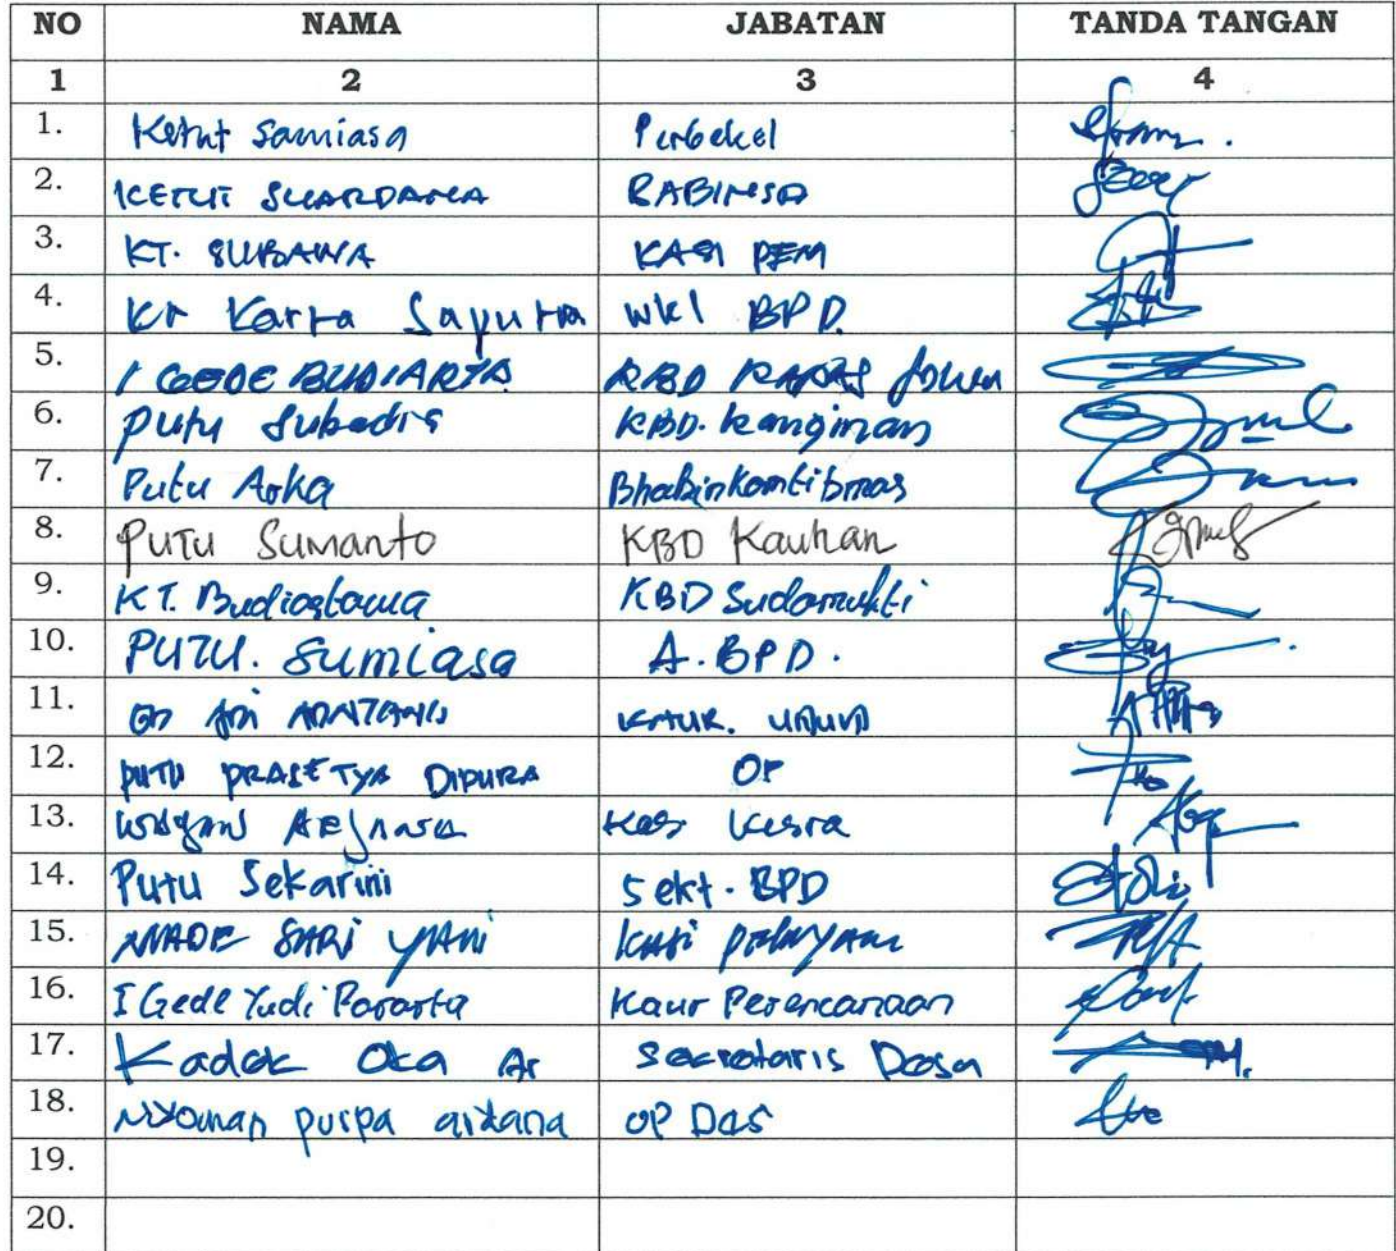 NO NAMA JABATAN TANDA TANGAN
1 2 3 4
1. Ketut Samiasa Perbekel
2. KETUT SUARDANA BABINSA
3. KT. SUBAWA KASI PEM
4. Kt Karta Saputra Wkl BPD.
5. I GEDE BUDIARTA KBD
6. Putu Subadra KBD. Kanginan
7. Putu Arka Bhabinkamtibmas
8. PUTU Sumanto KBD Kauhan
9. KT. Budiastawa KBD Sudamukti
10. PUTU. Sumiasa A. BPD.
11. GD KAUR. UMUM
12. PUTU PRASETYA DIPURA OP
13. Kasi Kesra
14. Putu Sekarini Sekt. BPD
15. MADE SARI YANI
16. I Gede Yudi Pararta Kaur Perencanaan
17. Kadek Oka Ar Secretaris Desa
18. Nyoman puspa OP Das
19.
20.